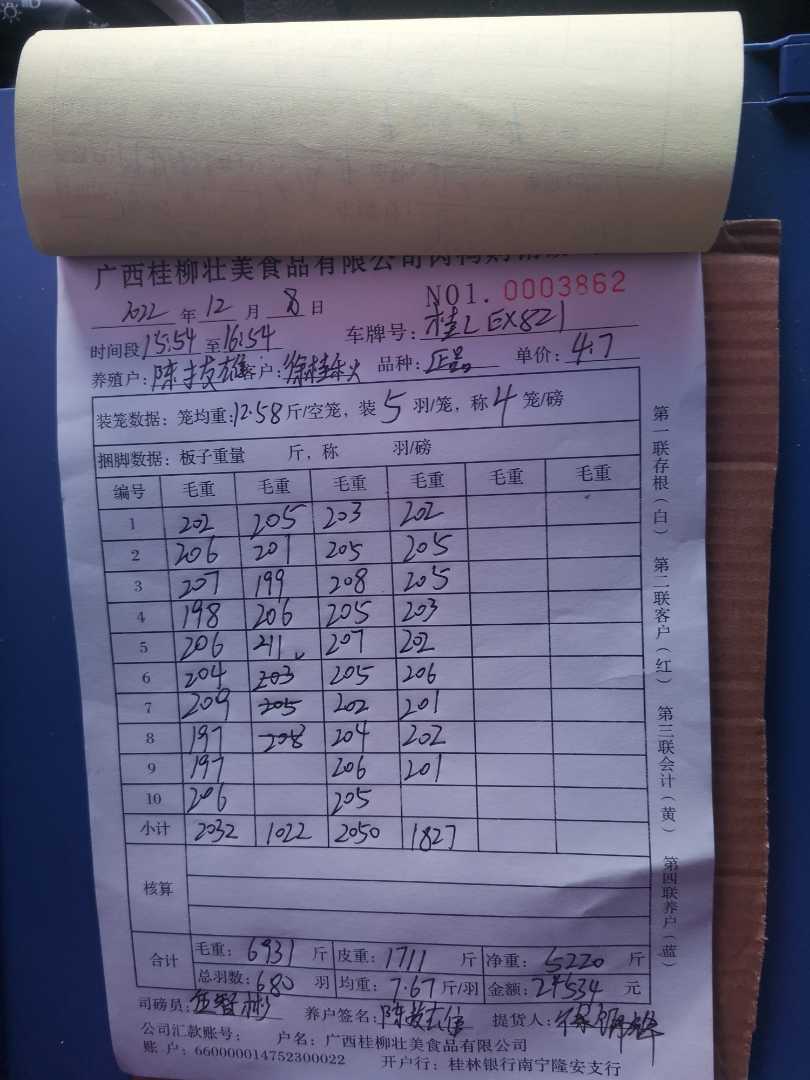 广西桂柳壮美食品有限公司肉鸭购销
2022 年 12 月 8 日 NO1. 0003862
时间段 15:54 至 16:54 车牌号: 桂L EX821
养殖户: 陈技雄 客户: 徐桂 品种: 正品 单价: 4.7
装笼数据: 笼均重: 12.58 斤/空笼, 装 5 羽/笼, 称 4 笼/磅
捆脚数据: 板子重量 斤, 称 羽/磅
编号 毛重 毛重 毛重 毛重 毛重 毛重
1 202 205 203 202
2 206 201 205 205
3 207 199 208 205
4 198 206 205 203
5 206 211 207 202
6 204 203 205 206
7 209 205 202 201
8 197 208 204 202
9 197 206 201
10 206 205
小计 2032 1022 2050 1827
核算
合计 毛重: 6931 斤 皮重: 1711 斤 净重: 5220 斤
总羽数: 680 羽 均重: 7.67 斤/羽 金额: 24534 元
司磅员: 智彬 养户签名: 陈 提货人:
公司汇款账号: 户名: 广西桂柳壮美食品有限公司
账 户: 660000014752300022 开户行: 桂林银行南宁隆安支行
第一联存根(白) 第二联客户(红) 第三联会计(黄) 第四联养户(蓝)